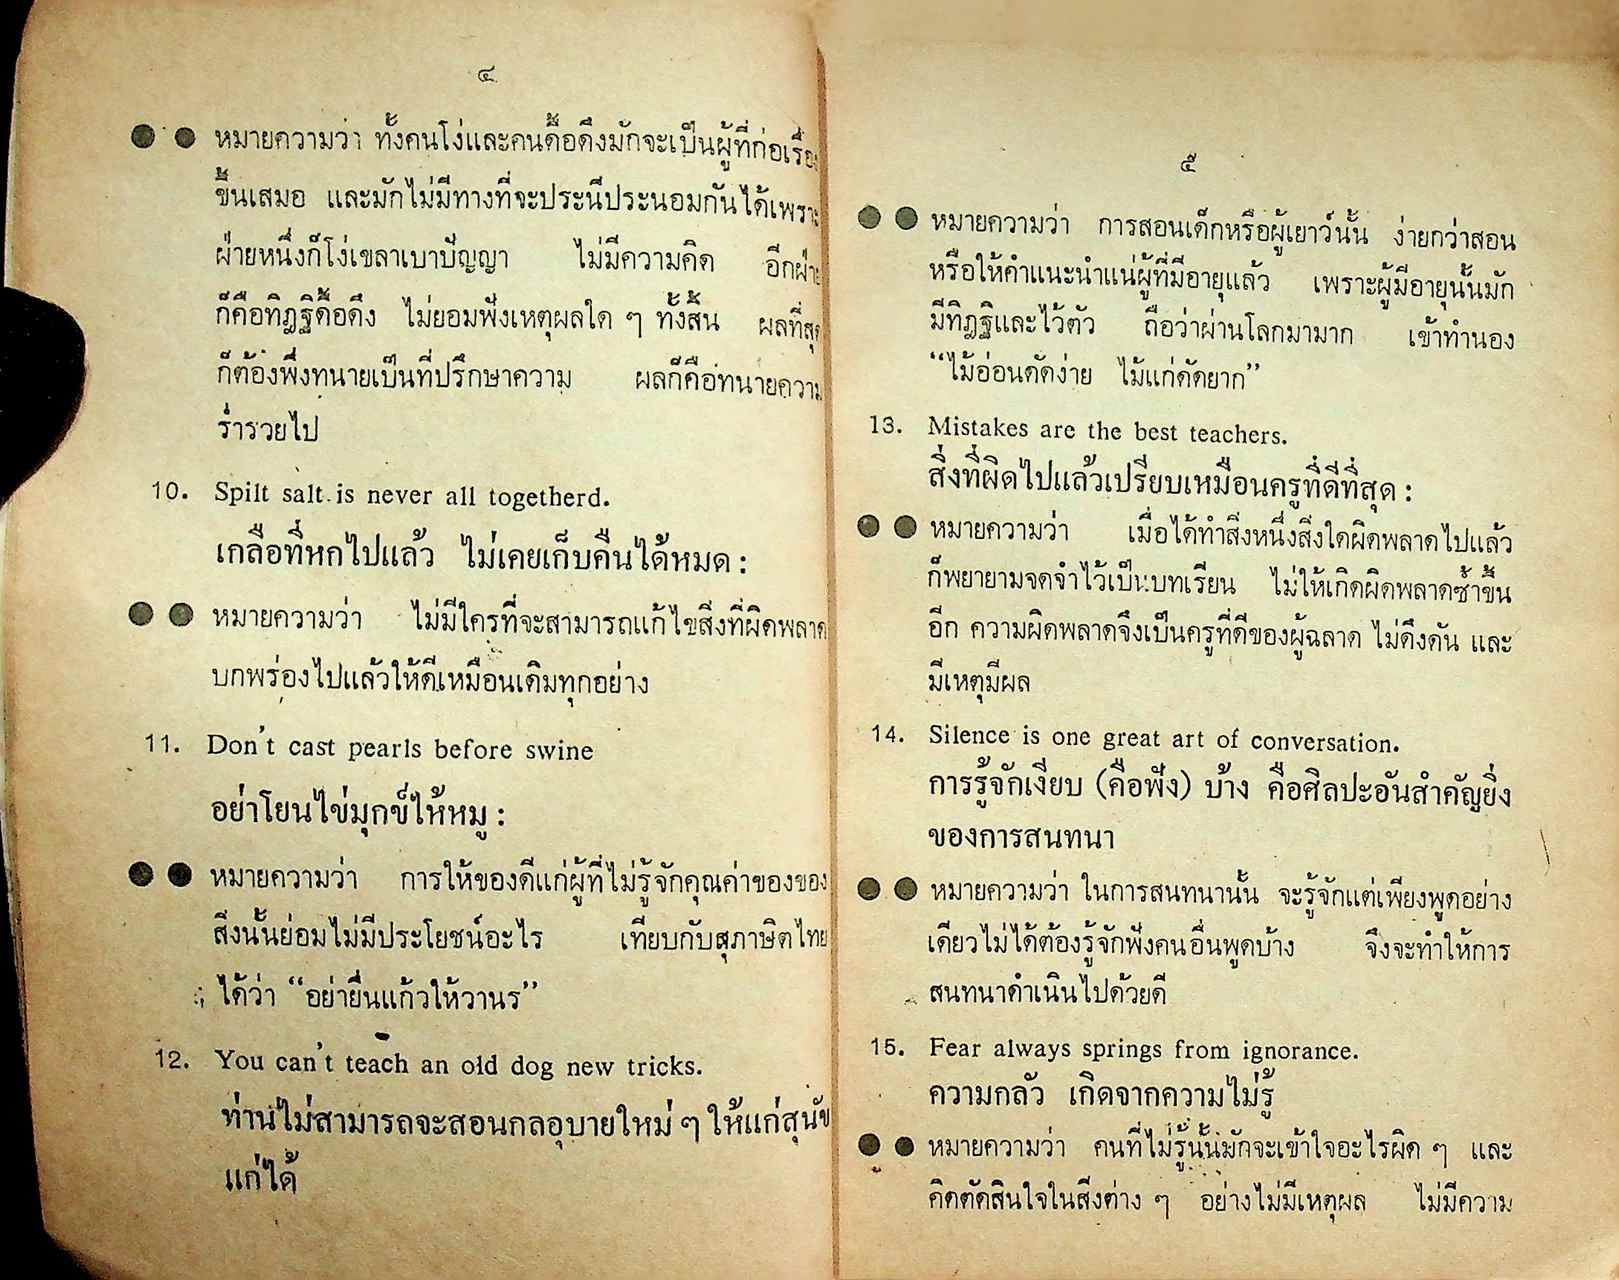 ๔
หมายความว่า ทั้งคนโง่และคนดื้อดึงมักจะเป็นผู้ที่ก่อเรื่อง
ขึ้นเสมอ และมักไม่มีทางที่จะประนีประนอมกันได้เพราะ
ฝ่ายหนึ่งก็โง่เขลาเบาปัญญา ไม่มีความคิด อีกฝ่าย
ก็คือทิฎฐิดื้อดึง ไม่ยอมฟังเหตุผลใด ๆ ทั้งสิ้น ผลที่สุด
ก็ต้องพึ่งทนายเป็นที่ปรึกษาความ ผลก็คือทนายความ
ร่ำรวยไป
10. Spilt salt is never all togetherd.
เกลือที่หกไปแล้ว ไม่เคยเก็บคืนได้หมด :
หมายความว่า ไม่มีใครที่จะสามารถแก้ไขสิ่งที่ผิดพลาด
บกพร่องไปแล้วให้ดีเหมือนเดิมทุกอย่าง
11. Don't cast pearls before swine
อย่าโยนไข่มุกข์ให้หมู :
หมายความว่า การให้ของดีแก่ผู้ที่ไม่รู้จักคุณค่าของของ
สิ่งนั้นย่อมไม่มีประโยชน์อะไร เทียบกับสุภาษิตไทย
ได้ว่า “อย่ายื่นแก้วให้วานร”
12. You can't teach an old dog new tricks.
ท่านไม่สามารถจะสอนกลอุบายใหม่ ๆ ให้แก่สุนัข
แก่ได้
๕
หมายความว่า การสอนเด็กหรือผู้เยาว์นั้น ง่ายกว่าสอน
หรือให้คำแนะนำแน่ผู้ที่มีอายุแล้ว เพราะผู้มีอายุนั้นมัก
มีทิฎฐิและไว้ตัว ถือว่าผ่านโลกมามาก เข้าทำนอง
“ไม้อ่อนดัดง่าย ไม้แก่ดัดยาก”
13. Mistakes are the best teachers.
สิ่งที่ผิดไปแล้วเปรียบเหมือนครูที่ดีที่สุด :
หมายความว่า เมื่อได้ทำสิ่งหนึ่งสิ่งใดผิดพลาดไปแล้ว
ก็พยายามจดจำไว้เป็นบทเรียน ไม่ให้เกิดผิดพลาดซ้ำขึ้น
อีก ความผิดพลาดจึงเป็นครูที่ดีของผู้ฉลาด ไม่ดึงดัน และ
มีเหตุมีผล
14. Silence is one great art of conversation.
การรู้จักเงียบ (คือฟัง) บ้าง คือศิลปะอันสำคัญยิ่ง
ของการสนทนา
หมายความว่า ในการสนทนานั้น จะรู้จักแต่เพียงพูดอย่าง
เดียวไม่ได้ต้องรู้จักฟังคนอื่นพูดบ้าง จึงจะทำให้การ
สนทนาดำเนินไปด้วยดี
15. Fear always springs from ignorance.
ความกลัว เกิดจากความไม่รู้
หมายความว่า คนที่ไม่รู้นั้นมักจะเข้าใจอะไรผิด ๆ และ
คิดตัดสินใจในสิ่งต่าง ๆ อย่างไม่มีเหตุผล ไม่มีความ